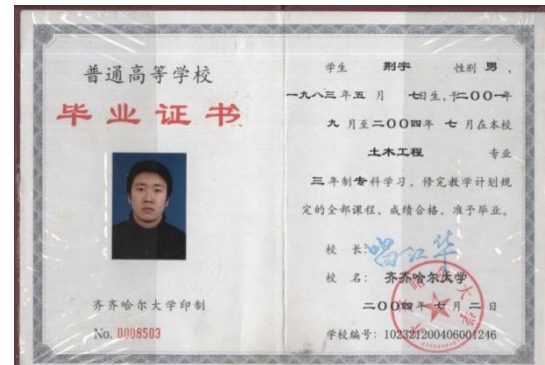 普通高等学校
毕业证书
齐齐哈尔大学印制
No. 0008503
学生 荆宇 性别 男，
一九八三年五月 七日生，于二〇〇一年
九 月至二〇〇四年 七 月在本校
土木工程 专业
三年制专科学习，修完教学计划规
定的全部课程，成绩合格，准予毕业。
校 长：
校 名： 齐齐哈尔大学
二〇〇四年七月二日
学校编号：102321200406001246